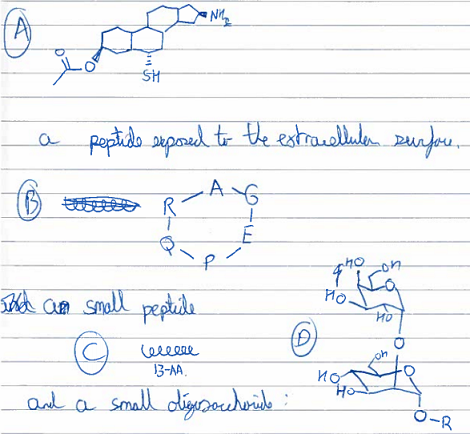 A
NH2
O
O
SH
a peptide exposed to the extracellular surface.
B
A
R G
Q E
P
and a small peptide
HO OH
O
HO
HO
C
D
13-AA.
O
OH
HO O
HO
and a small oligosaccharide:
O-R